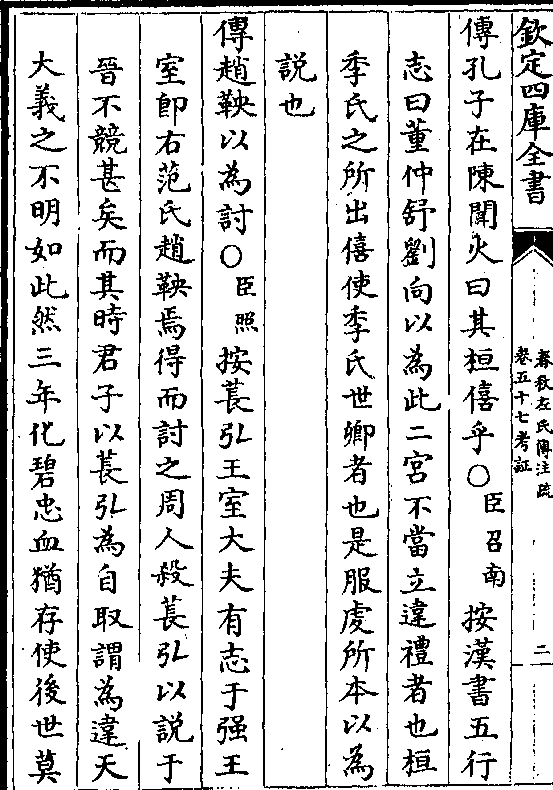 欽定四庫全書
春秋左氏傳注疏
卷五十七考証
二
傳孔子在陳聞火曰其桓僖乎〇臣召南按漢書五行
志曰董仲舒劉向以為此二宮不當立違禮者也桓
季氏之所出僖使季氏世卿者也是服虔所本以為
説也
傳趙鞅以為討〇臣照按萇弘王室大夫有志于强王
室即右范氏趙鞅焉得而討之周人殺萇弘以説于
晉不競甚矣而其時君子以萇弘為自取謂為違天
大義之不明如此然三年化碧忠血猶存使後世莫